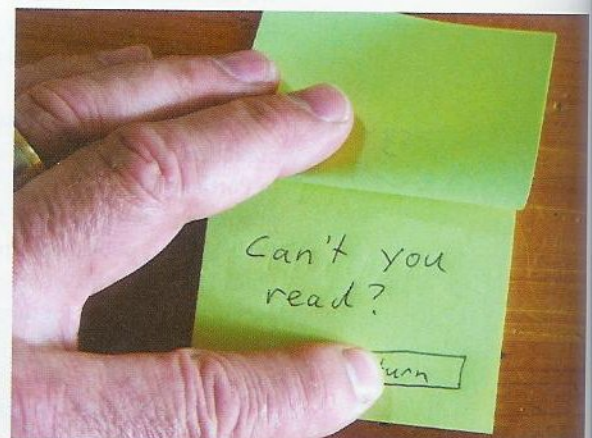 Can't you
read?
turn